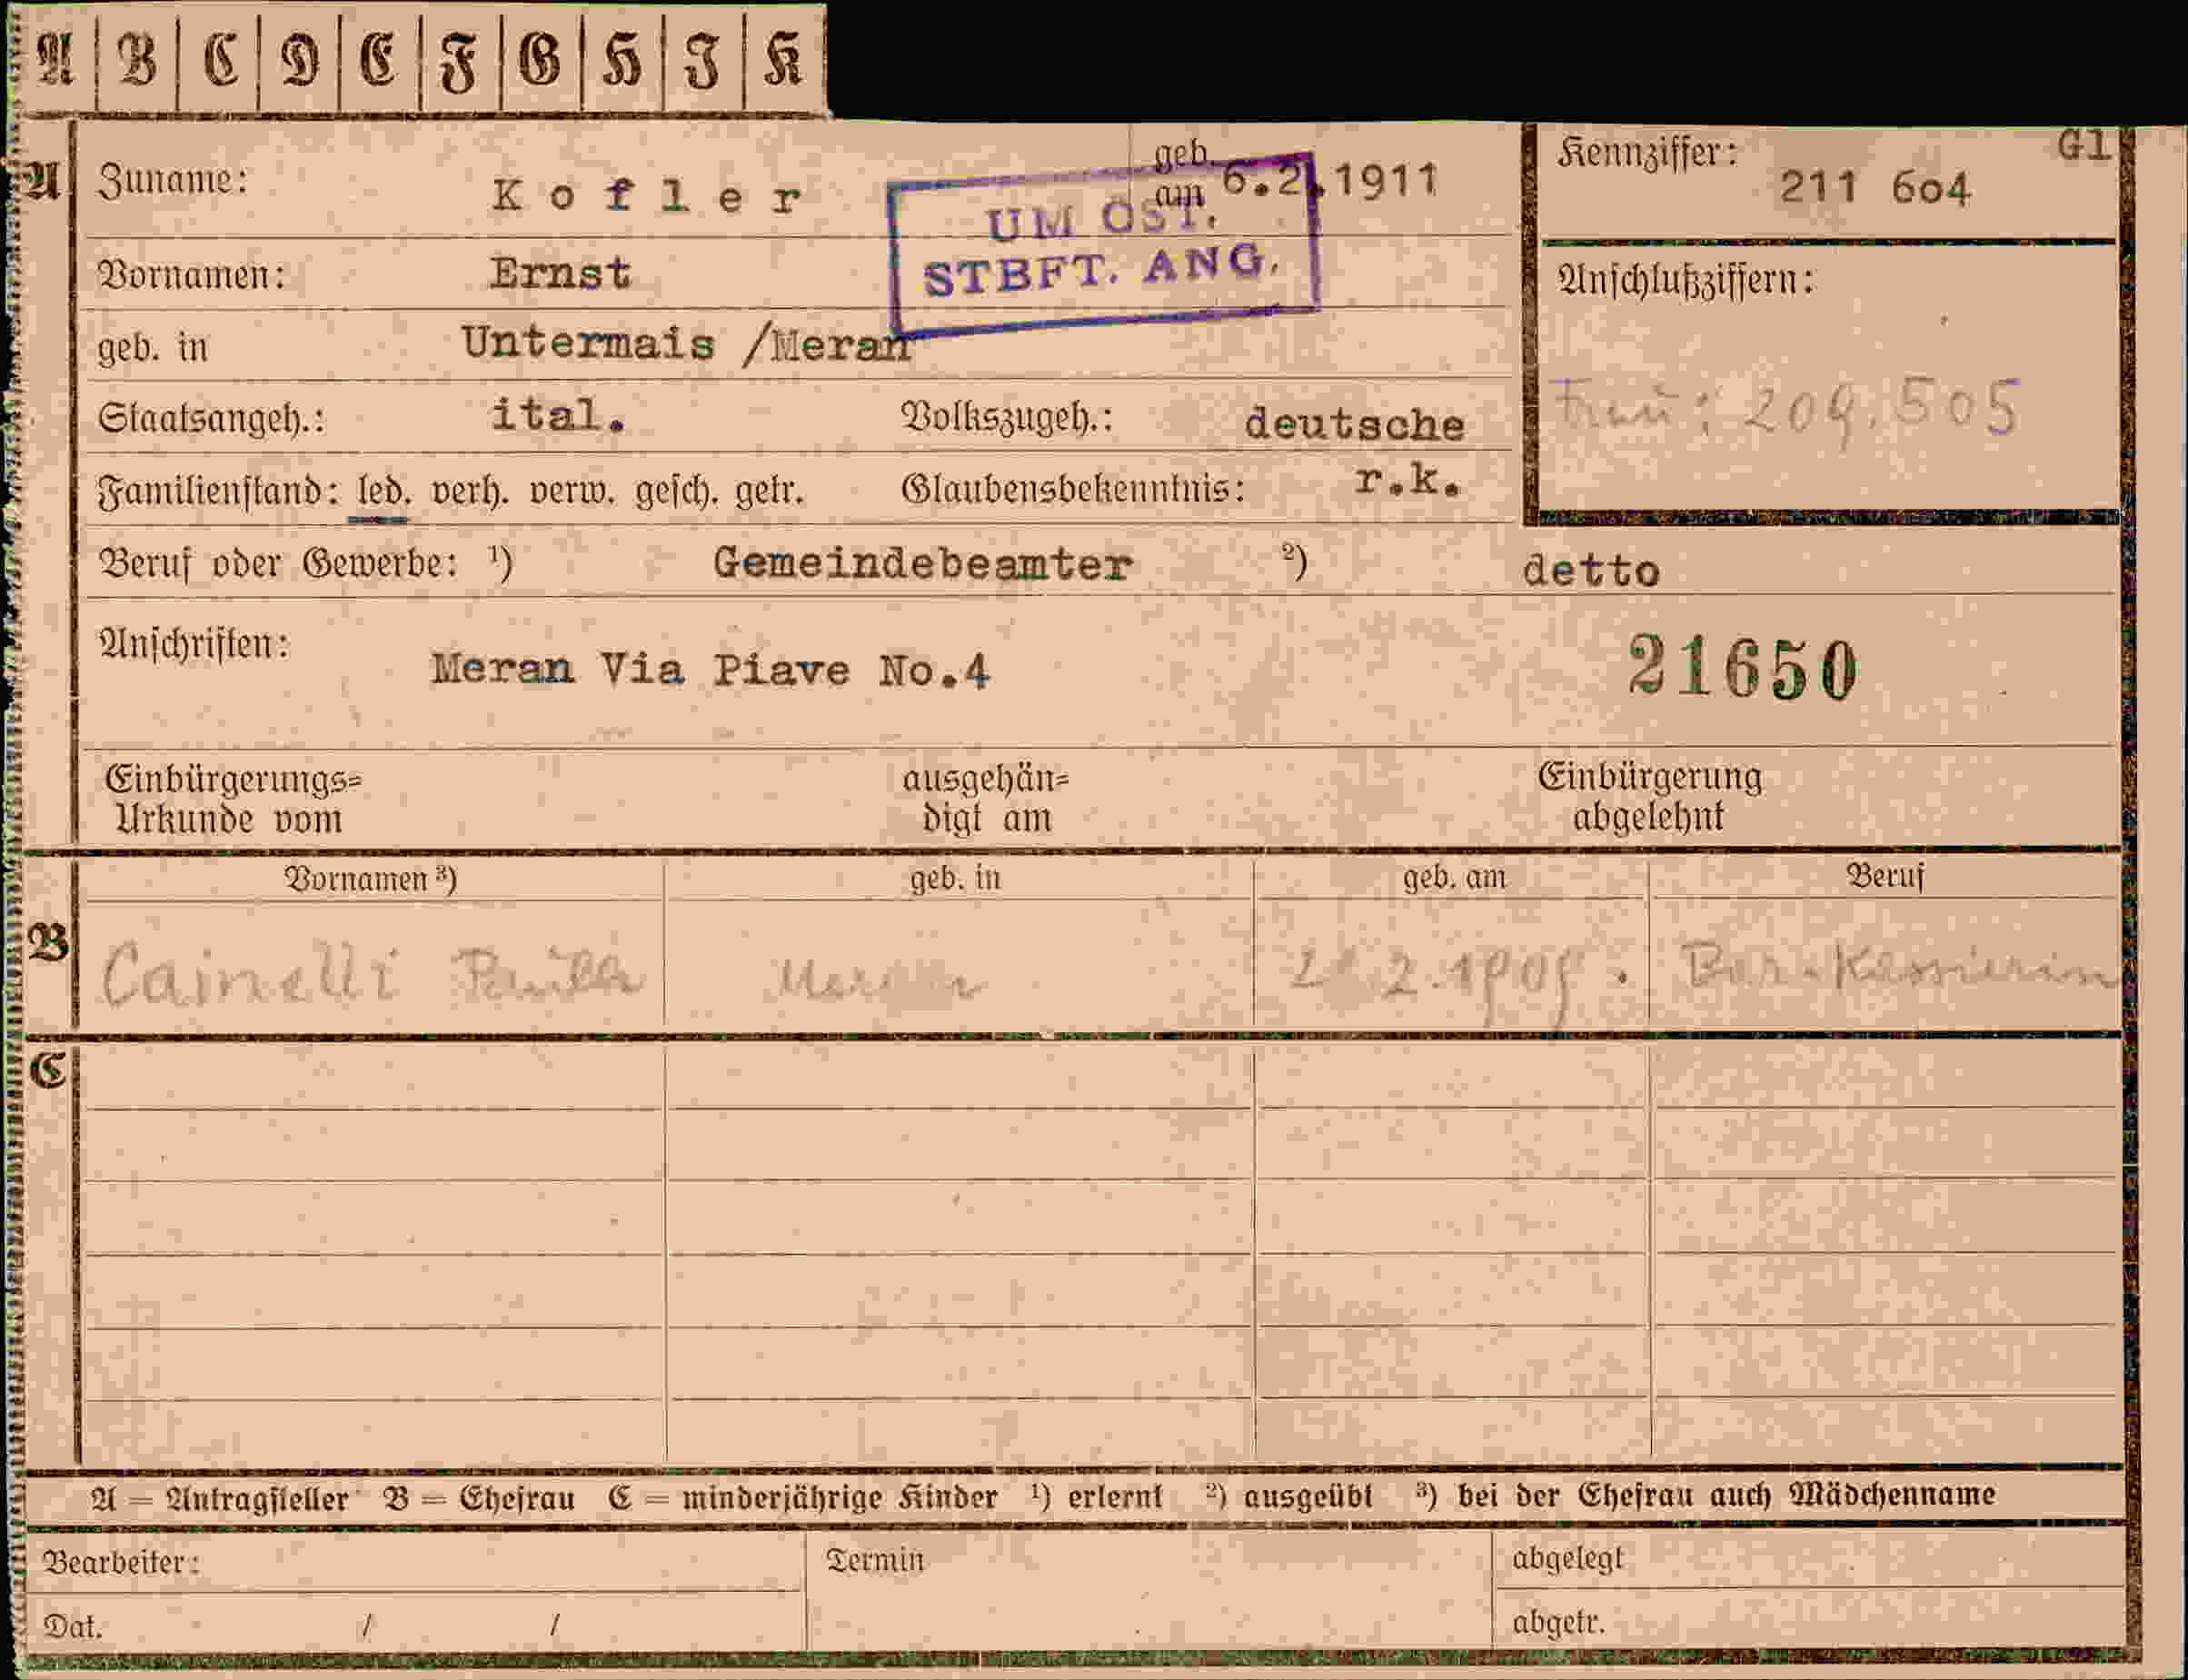 A B C D E F G H I K
A Zuname: Kofler geb. am 6.2.1911
UM OST.
STBFT. ANG.
Kennziffer: 211 6o4 G1
Vornamen: Ernst
Anschlußziffern:
geb. in Untermais /Meran
Frau: 209.505
Staatsangeh.: ital. Volkszugeh.: deutsche
Familienstand: led. verh. verw. gesch. getr. Glaubensbekenntnis: r.k.
Beruf oder Gewerbe: ¹) Gemeindebeamter ²) detto
Anschriften: Meran Via Piave No.4
21650
Einbürgerungs= ausgehän= Einbürgerung
Urkunde vom digt am abgelehnt
Vornamen ³) geb. in geb. am Beruf
B Cainelli Paula Meran 2.1909.
C
A = Antragsteller B = Ehefrau C = minderjährige Kinder ¹) erlernt ²) ausgeübt ³) bei der Ehefrau auch Mädchenname
Bearbeiter: Termin abgelegt
Dat. / / abgetr.